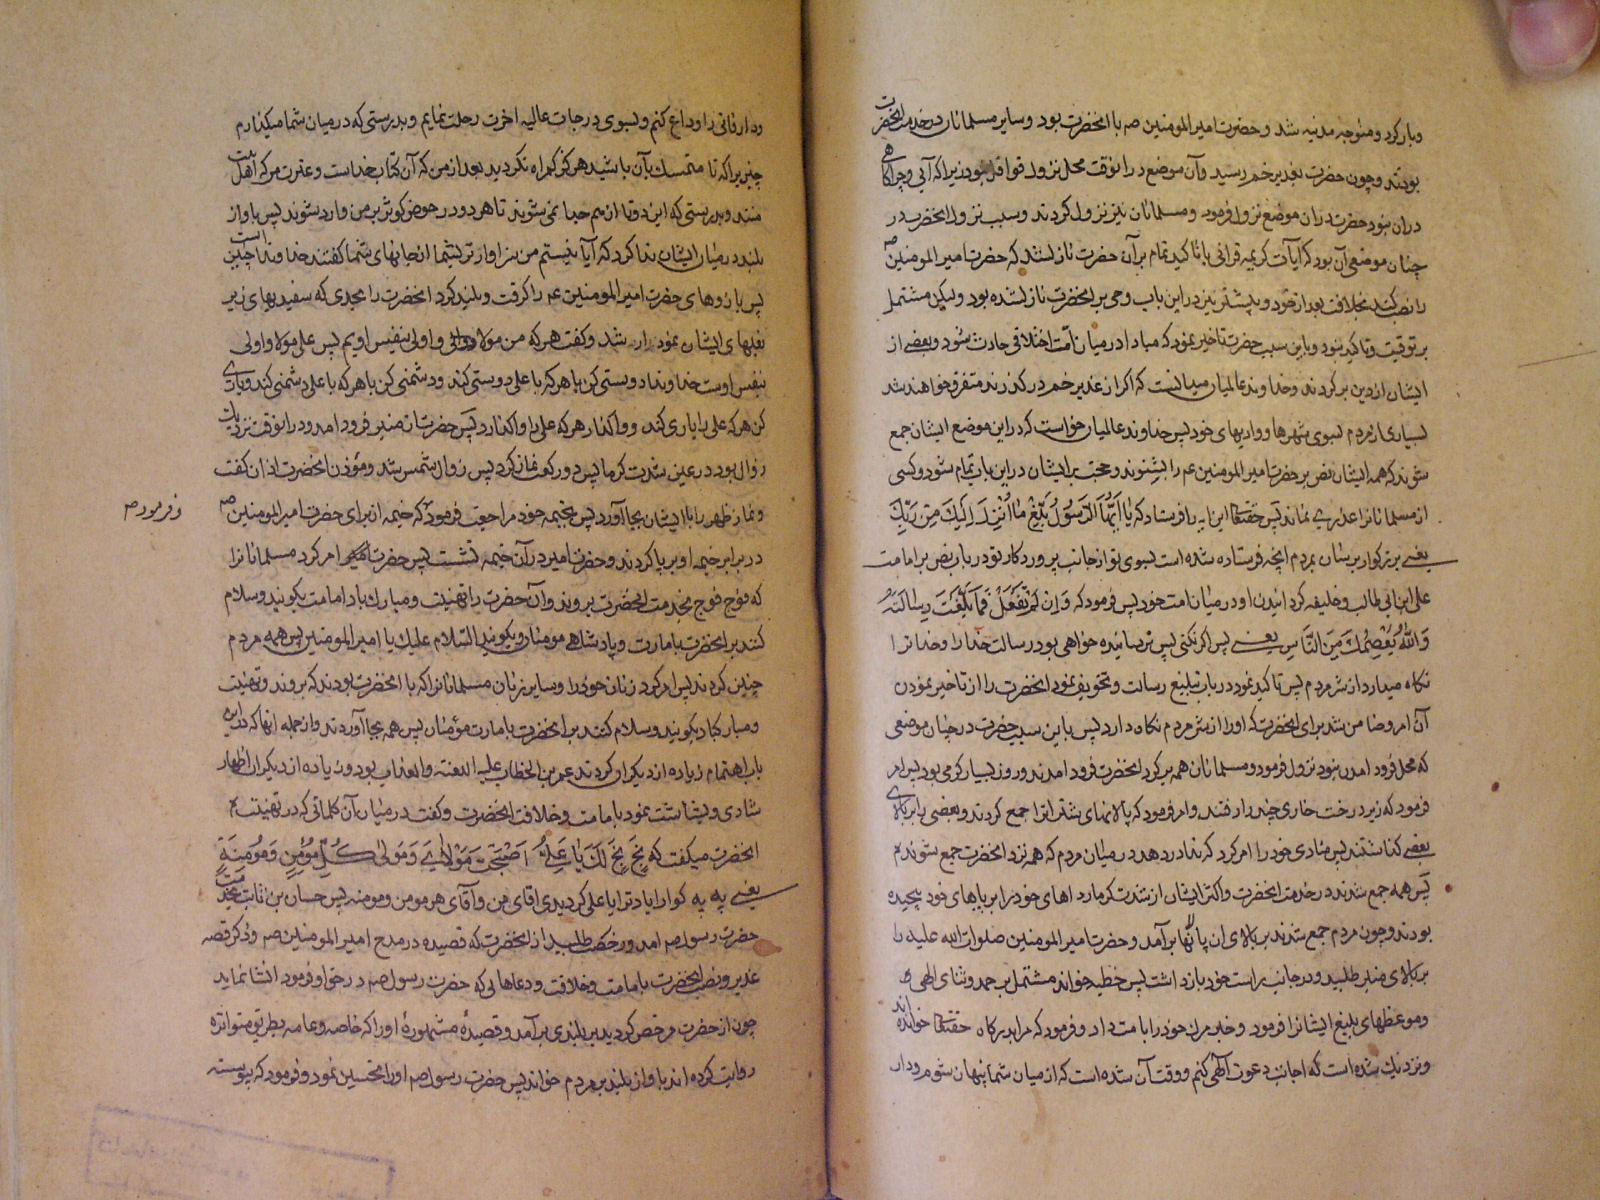 و بار کرد و متوجه مدنیه شد و حضرت امیر المومنین صم با انحضرت بود و سایر مسلمانان در خدمت انحضرت
بودند و چون حضرت بغدیر خم رسید و آن موضع در انوقت محل نزول قوافل نبود زیرا که آبی و چراکاهی
دران نبود حضرت دران موضع نزول فرمود و مسلمانان نیز نزول کردند و سبب نزول انحضرت در
چنان موضعی آن بود که آیات کریمه قرانی با تاکید تمام بر آن حضرت نازلشد که حضرت امیر المومنین صم
را نصب کند بخلافت بعد از خود و پیشتر نیز در این باب وحی بر انحضرت نازلشده بود ولیکن مشتمل
بر توقیت و تاکید نبود و باین سبب حضرت تاخیر نمود که مبادا در میان امت اختلافی حادث شود و بعضی از
ایشان از دین بر کردند و خداوند عالمیان میدانست که اکر از غدیر خم در کذرند متفرق خواهند شد
بسیاری از مردم بسوی شهرها و وادیهای خود پس خداوند عالمیان خواست که در این موضع ایشان جمع
شوند که همه ایشان نص بر حضرت امیر المومنین عم را بشنوند و حجت بر ایشان در این باب تمام شود و کسی
از مسلمانانرا عذری نماند پس حقتعالی این ایه را فرستاد که یَا اَیُّهَا الرَّسُولُ بَلِّغْ مَا اُنْزِلَ اِلَیْکَ مِنْ رَبِّکَ
یعنی ای بزرکوار برسان بمردم انچه فرستاده شده است بسوی تو از جانب پروردکار تو در باب نص بر امامت
علی ابن ابی طالب و خلیفه کردانیدن او در میان امت خود پس فرمود که وَاِنْ لَمْ تَفْعَلْ فَمَا بَلَّغْتَ رِسَالَتَهُ
وَاللّٰهُ یَعْصِمُکَ مِنَ النَّاسِ یعنی پس اکر نکنی پس نرسانیده خواهی بود رسالت خدا را و خدا ترا
نکاه میدارد از شر مردم پس تاکید نمود در باب تبلیغ رسالت و تخویف نمود انحضرت را از تاخیر نمودن
آن امر و ضامن شد برای انحضرت که او را از شر مردم نکاه دارد پس باین سبب حضرت در چنان موضعی
که محل فرود امدن نبود نزول فرمود و مسلمانان همه بر کرد انحضرت فرود امدند و روز بسیار کرمی بود پس امر
فرمود که زیر درخت خاری چند را رفتند و امر فرمود که پالانهای شتران را جمع کردند و بعضی را بر بالای
بعضی کذاشتند پس منادی خود را امر کرد که ندا در دهد در میان مردم که همه نزد انحضرت جمع شوند
پس همه جمع شدند در خدمت انحضرت و اکثر ایشان از شدت کرما رداهای خود را بر پاهای خود پیچیده
بودند و چون مردم جمع شدند بر بالای ان پالانها بر آمد و حضرت امیر المومنین صلوات الله علیه را
بر بالای منبر طلبید و در جانب راست خود بازداشت پس خطبه خواند مشتمل بر حمد و ثنای الهی
و موعظهای بلیغ ایشانرا فرمود و خبر مردن خود را بامت داد و فرمود که مرا بدرکاه حقتعالی خوانده اند
و نزدیک شده است که اجابت دعوت آلهی کنم و وقت آن شده است که از میان شما پنهان شوم و دار
و دار فانی را وداع کنم و بسوی درجات عالیه اخرت رحلت نمایم و بدرستی که در میان شما میکذارم
چیزیرا که تا متمسک بآن باشید هرکز کمراه نکردید بعد از من که آن کتاب خداست و عترت من که اهل بیت
منند و بدرستی که این دو تا از هم جدا نمی شوند تا هر دو در حوض کوثر بر من وارد شوند پس باواز
بلند در میان ایشان ندا کرد که آیا نیستم من سزاوارتر بشما از جانهای شما کفتند خداوندا چنین است
پس بازوهای حضرت امیر المومنین عم را کرفت و بلند کرد انحضرت را بحدی که سفیدیهای زیر
بغلهای ایشان نمودار شد و کفت هر که من مولا و اولی بنفس اویم پس علی مولا و اولی
بنفس اوست خداوندا دوستی کن با هر که با علی دوستی کند و دشمنی کن با هر که با علی دشمنی کند و یاری
کن هر که علی را یاری کند و واکذار هر که علی را واکذارد پس حضرت از منبر فرود امد و در انوقت نزدیک
زوال بود در عین شدت کرما پس دو رکعت نماز کرد پس زوال شمس شد و مؤذن انحضرت اذان کفت
و نماز ظهر را با ایشان بجا آورد پس بخیمه خود مراجعت فرمود که خیمه از برای حضرت امیر المومنین صم
و فرمود صم
در برابر خیمه او بر پا کردند و حضرت امیر در آن خیمه نشست پس حضرت امر کرد مسلمانانرا
که فوج فوج بخدمت انحضرت بروند و آن حضرت را تهنیت و مبارک باد امامت بکویند و سلام
کنند بر انحضرت بامارت و پادشاهی مومنان و بکویند السلام علیک یا امیر المومنین پس همه مردم
چنین کردند پس امر کرد زنان خود را و سایر زنان مسلمانانرا که با انحضرت بودند که بروند و تهنیت
و مبارکباد بکویند و سلام کنند بر انحضرت بامارت مؤمنان پس همه بجا آوردند و از جمله انها که در این
باب اهتمام زیاده از دیکران کردند عمر بن الخطاب علیه اللعنة و العذاب بود و زیاده از دیکران اظهار
شادی و بشاشت نمود بامامت و خلافت انحضرت و کفت در میان آن کلماتی که در تهنیت
انحضرت میکفت که بَخٍ بَخٍ لَکَ یَا عَلِیُّ اَصْبَحْتَ مَوْلَایَ وَمَولٰی کُلِّ مُؤْمِنٍ وَمُؤمِنَةٍ
یعنی به به کوارا باد ترا یا علی کردیدی اقای من و آقای هر مومن و مومنه پس حسان بن ثابت بخدمت
حضرت رسول صم امد و رخصت طلبید از انحضرت که قصیده در مدح امیر المومنین صم و ذکر قصه
غدیر و نصب انحضرت بامامت و خلافت و دعاهایی که حضرت رسول صم در حق او فرمود انشا نماید
چون از حضرت مرخص کردید بر بلندی بر آمد و قصیدهٔ مشهورهٔ او را که خاصه و عامه بطریق متواتره
روایت کرده اند باواز بلند بر مردم خواند پس حضرت رسول صم او را تحسین نمود و فرمود که پیوسته